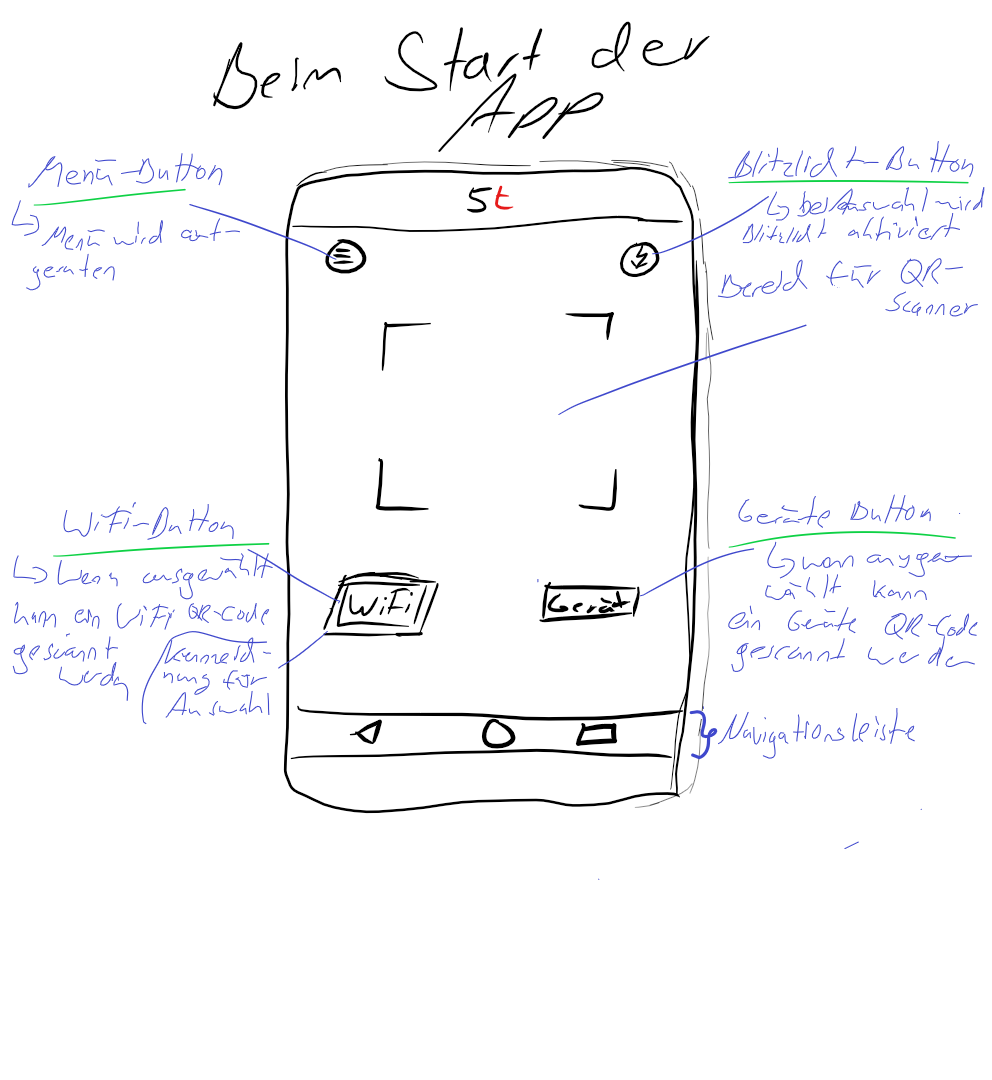 Beim Start der
App
Menü-Button
↳ Menü wird auf-
gerufen
5t
Blitzlicht-Button
↳ bei Auswahl wird
Blitzlicht aktiviert
Bereich für QR-
Scanner
WiFi-Button
↳ Wenn ausgewählt
kann ein WiFi QR-Code
gescannt
werden
Kennzeich-
nung für
Auswahl
WiFi
Gerät
Geräte Button
↳ wenn ausge-
wählt kann
ein Geräte QR-Code
gescannt werden
Navigationsleiste